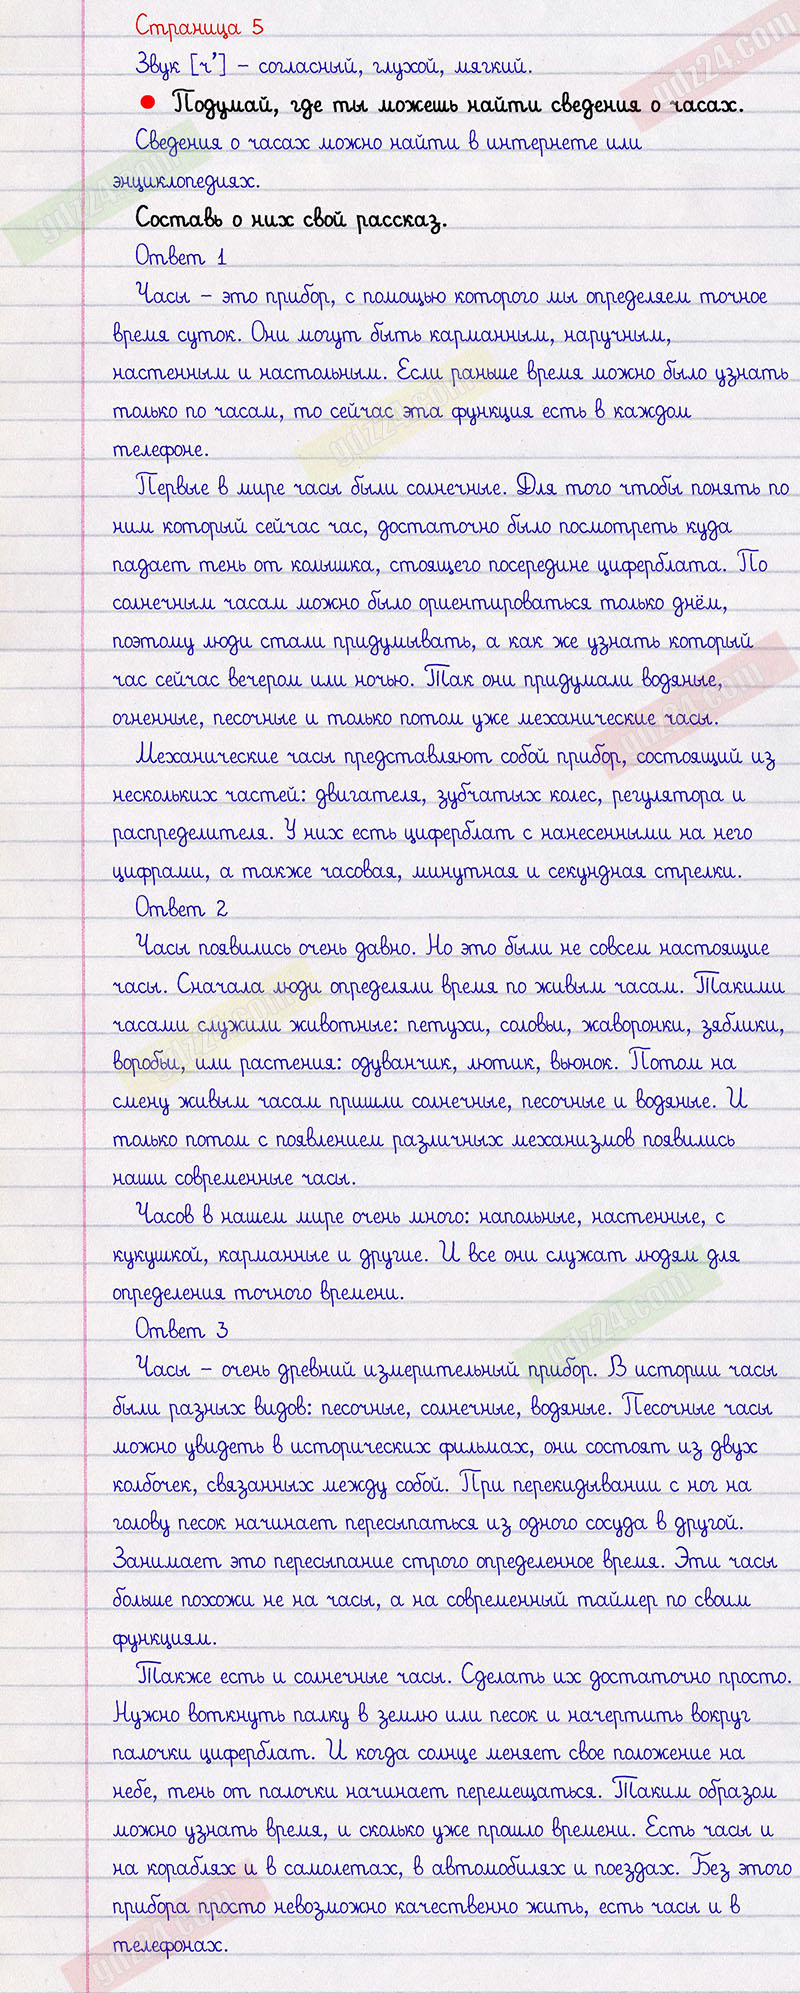 Страница 5
Звук [ч’] – согласный, глухой, мягкий.
● Подумай, где ты можешь найти сведения о часах.
Сведения о часах можно найти в интернете или
энциклопедиях.
Составь о них свой рассказ.
Ответ 1
Часы – это прибор, с помощью которого мы определяем точное
время суток. Они могут быть карманным, наручным,
настенным и настольным. Если раньше время можно было узнать
только по часам, то сейчас эта функция есть в каждом
телефоне.
Первые в мире часы были солнечные. Для того чтобы понять по
ним который сейчас час, достаточно было посмотреть куда
падает тень от колышка, стоящего посередине циферблата. По
солнечным часам можно было ориентироваться только днём,
поэтому люди стали придумывать, а как же узнать который
час сейчас вечером или ночью. Так они придумали водяные,
огненные, песочные и только потом уже механические часы.
Механические часы представляют собой прибор, состоящий из
нескольких частей: двигателя, зубчатых колес, регулятора и
распределителя. У них есть циферблат с нанесенными на него
цифрами, а также часовая, минутная и секундная стрелки.
Ответ 2
Часы появились очень давно. Но это были не совсем настоящие
часы. Сначала люди определяли время по живым часам. Такими
часами служили животные: петухи, соловьи, жаворонки, зяблики,
воробьи, или растения: одуванчик, лютик, вьюнок. Потом на
смену живым часам пришли солнечные, песочные и водяные. И
только потом с появлением различных механизмов появились
наши современные часы.
Часов в нашем мире очень много: напольные, настенные, с
кукушкой, карманные и другие. И все они служат людям для
определения точного времени.
Ответ 3
Часы – очень древний измерительный прибор. В истории часы
были разных видов: песочные, солнечные, водяные. Песочные часы
можно увидеть в исторических фильмах, они состоят из двух
колбочек, связанных между собой. При перекидывании с ног на
голову песок начинает пересыпаться из одного сосуда в другой.
Занимает это пересыпание строго определенное время. Эти часы
больше похожи не на часы, а на современный таймер по своим
функциям.
Также есть и солнечные часы. Сделать их достаточно просто.
Нужно воткнуть палку в землю или песок и начертить вокруг
палочки циферблат. И когда солнце меняет свое положение на
небе, тень от палочки начинает перемещаться. Таким образом
можно узнать время, и сколько уже прошло времени. Есть часы и
на кораблях и в самолетах, в автомобилях и поездах. Без этого
прибора просто невозможно качественно жить, есть часы и в
телефонах.
gdz24.com
gdz24.com
gdz24.com
gdz24.com
gdz24.com
gdz24.com
gdz24.com